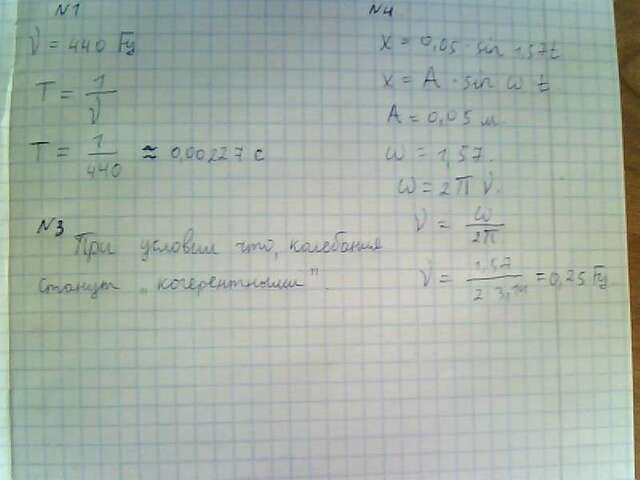 N1
ν = 440 Гц
T = 1/ν
T = 1/440 ≈ 0,00227 с
N3
При условии что, колебания
станут „когерентными".
N4
x = 0,05 · sin 1,57t
x = A · sin ω t
A = 0,05 м.
ω = 1,57.
ω = 2π ν.
ν = ω/2π
ν = 1,57/2 · 3,14 = 0,25 Гц.